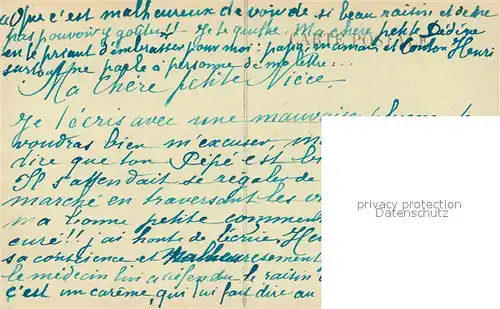 "Que c'est malheureux de voir de si beau raisin et de ne
pas pouvoir y goûter!! – Je te quitte Ma chère petite Dédine
en te priant d'embrasser pour moi: papa, maman et Tonton Henri
surtout ne parle à personne de ma lettre...
CARTE POSTALE
Ma Chère petite Nièce.
Je t'écris avec une mauvaise
voudras bien m'excuser,
dire que ton Pépé est
Il s'attendait se régaler de
marché en traversant les
ma bonne petite comment
curé!! j'ai honte de l'écrire
sa conscience et Malheureusement
le médecin lui a défendu le raisin
c'est un carême, qui lui fait dire au
privacy protection
Datenschutz